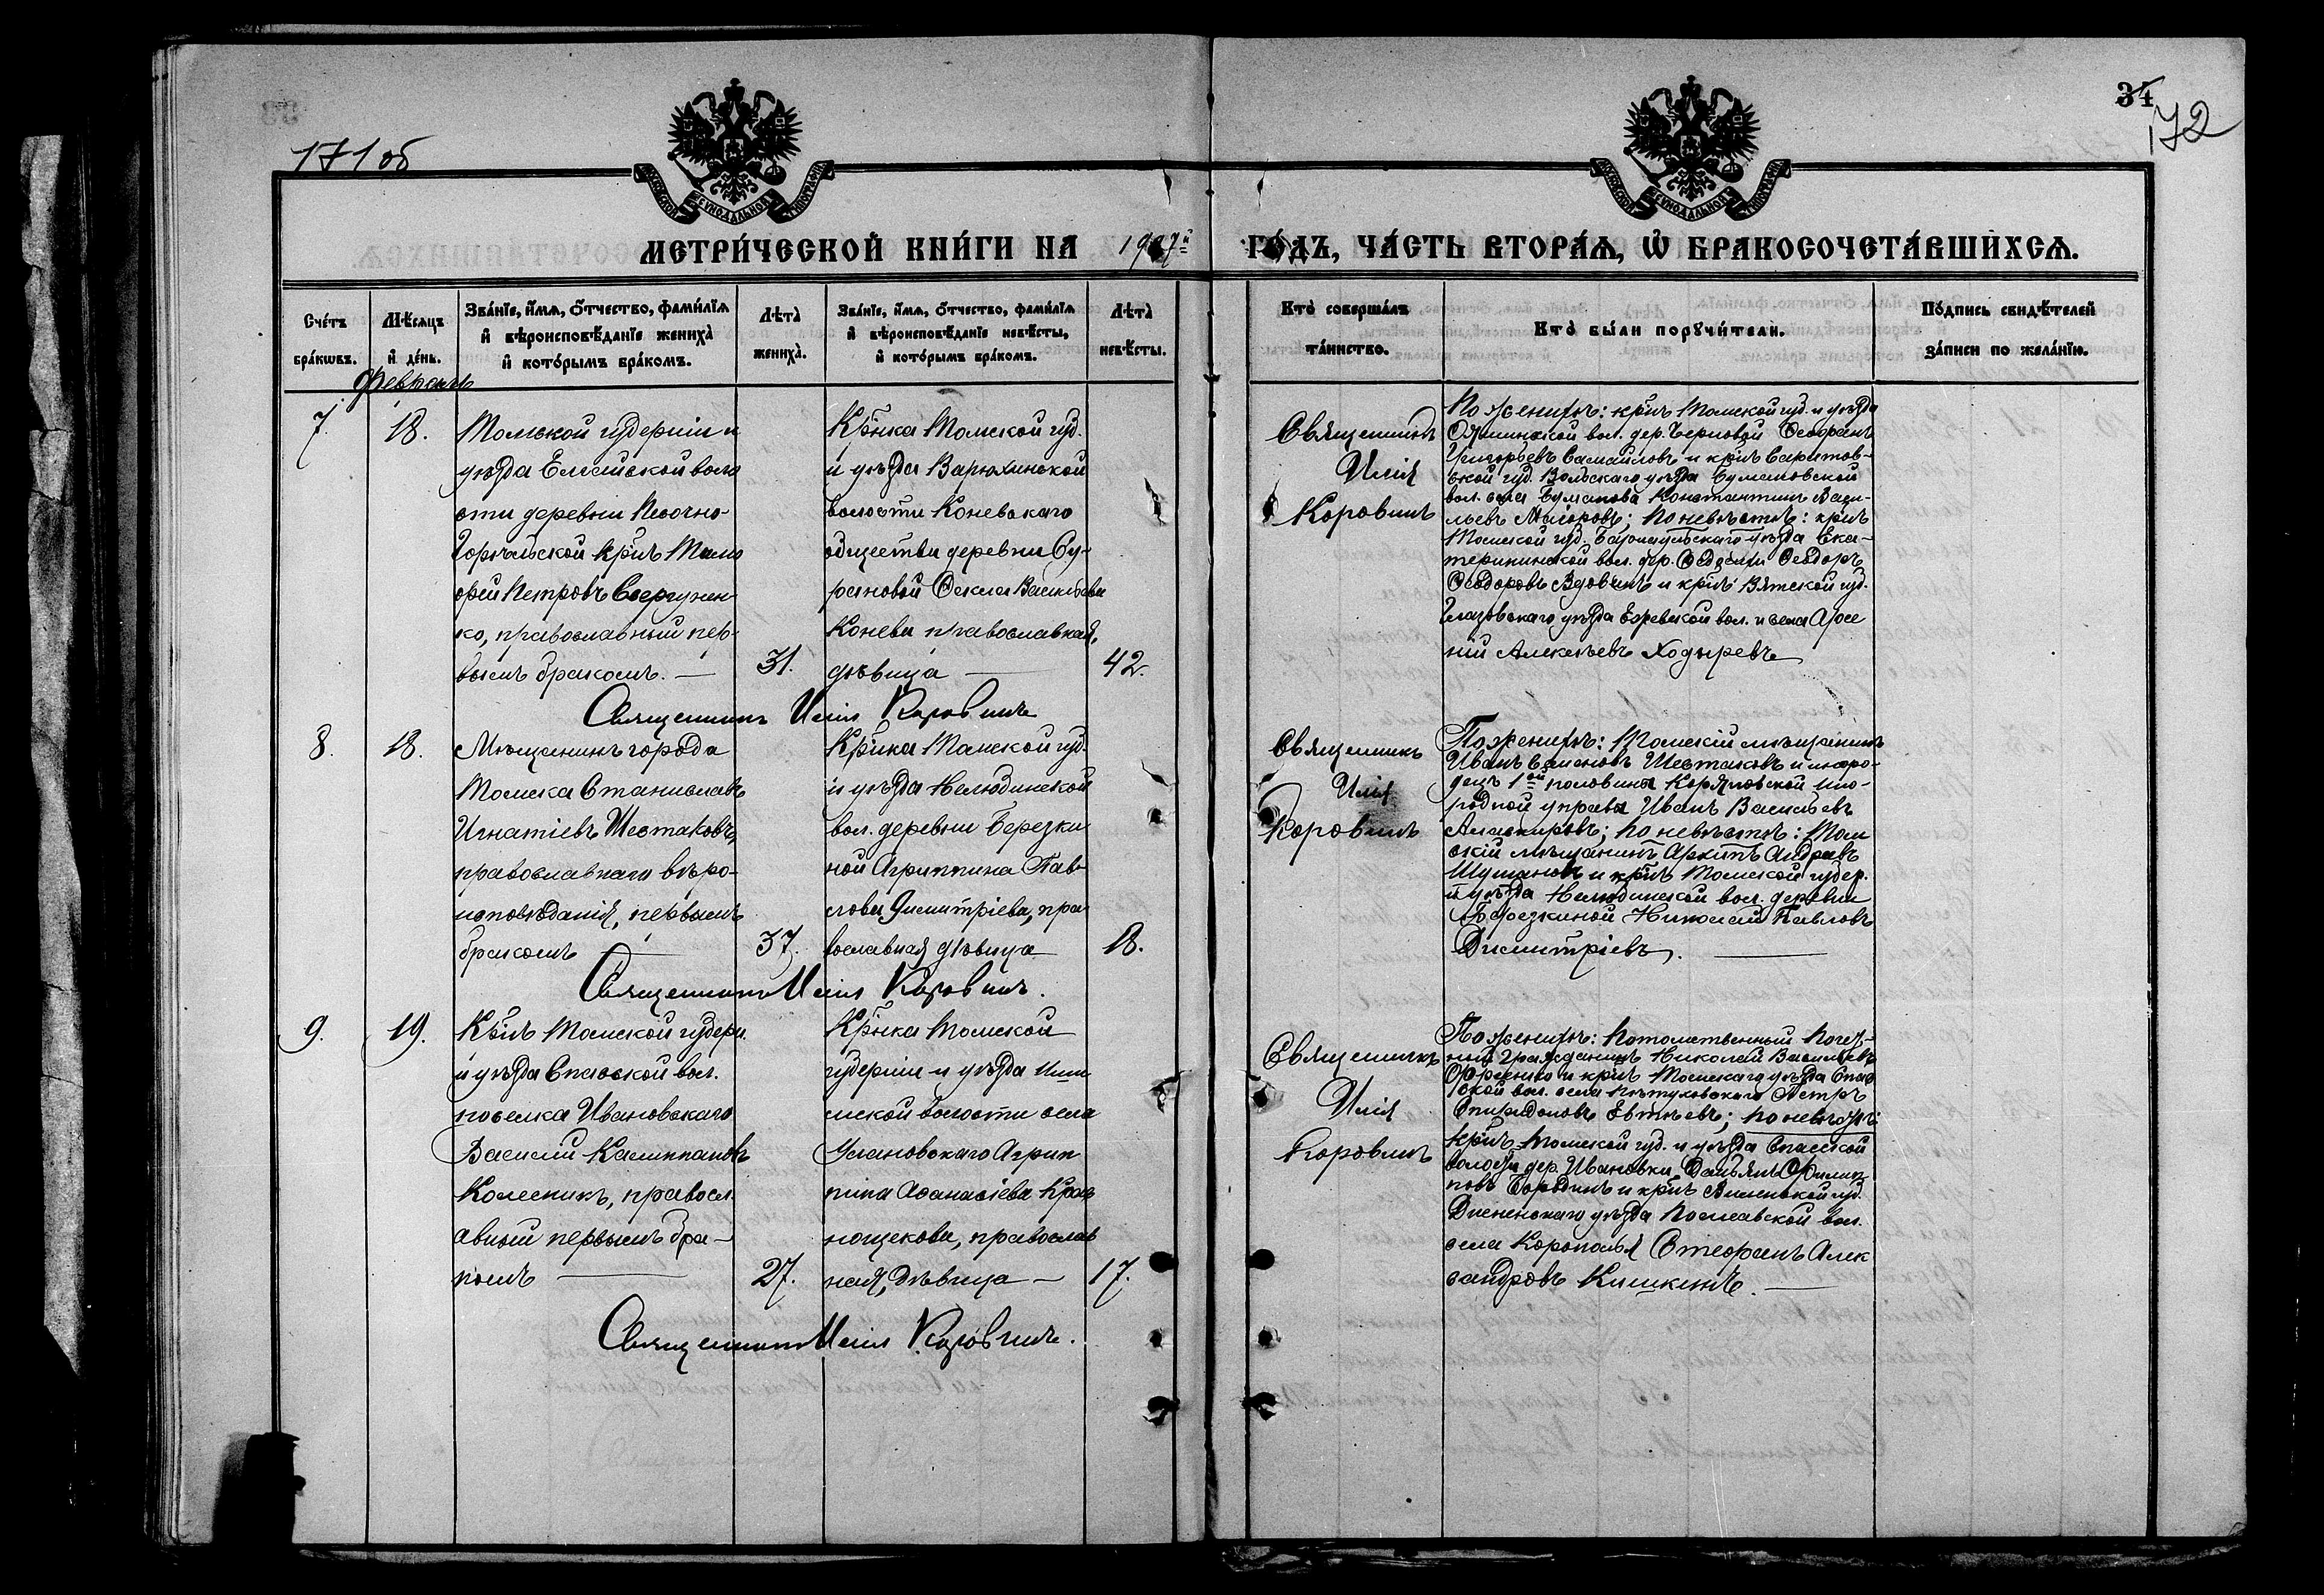 171 об
34
172
МОСКОВСКОЙ СУНОДАЛЬНОЙ ТИПОГРАФІИ
МОСКОВСКОЙ СУНОДАЛЬНОЙ ТИПОГРАФІИ
МЕТРИ́ЧЕСКОЙ КНИ́ГИ НА 1907й
ГО́ДЪ, ЧА́СТЬ ВТОРА́Ѧ, Ѽ БРАКОСОЧЕТА́ВШИХСѦ.
Сче́тъ
бра́кѡвъ.
Мѣ́сяцъ
и҆ де́нь.
Зва́нїе, и҆́мѧ, ѻ҆́тчество, фами́лїѧ
и҆ вѣроисповѣ́данїе жениха̀
и҆ кото́рымъ бра́комъ.
Лѣ́та
жениха̀.
Зва́нїе, и҆́мѧ, ѻ҆́тчество, фами́лїѧ
и҆ вѣроисповѣ́данїе невѣ́сты,
и҆ кото́рымъ бра́комъ.
Лѣ́та
невѣ́сты.
Кто̀ соверша́лъ
та́инство.
Кто̀ бы́ли порꙋчи́тели.
По́дпись свидѣ́телей
за́писи по жела́нїю.
Февраль
7.
18.
Томской губерніи и
уѣзда Елгайской воло
сти деревни Песочно-
Горѣльской кр̃нъ Тимо
фей Петровъ
ко, православный пер-
вымъ бракомъ. —
31.
Кр̃нка Томской губ.
и уѣзда Варюхинской
волости Коневскаго
общества деревни Су-
рановой Ѳекла Васильева
Конева православная,
дѣвица —
42.
Священникъ
Илія
Коровинъ
По женихѣ: кр̃нъ Томской губ. и уѣзда
Ояшинской вол. дер. Черновой Ѳеофанъ
Григорьевъ Самайловъ и кр̃нъ Саратов-
ской губ. Вольскаго уѣзда
вол. села Константинъ Васи-
льевъ Маіоровъ; по невѣстѣ: кр̃нъ
Томской губ. Барнаульскаго уѣзда Ека-
терининской вол. дер. Ѳеодоръ
Ѳеодоровъ Вдовинъ и кр̃нъ Вятской губ.
Глазовскаго уѣзда Ежевской вол. и села Арсе
ній Алексѣевъ Ходыревъ
Священникъ Илія Коровинъ
8.
18.
Мѣщанинъ города
Томска Станиславъ
Игнатіевъ Шестаковъ,
православнаго вѣро-
исповѣданія, первымъ
бракомъ —
37.
Кр̃нка Томской губ.
и уѣзда Нелюбинской
вол. деревни Березки
ной Агриппина Пав-
лова Димитріева, пра-
вославная дѣвица
18.
Священникъ
Илія
Коровинъ
По женихѣ: Томскій мѣщанинъ
Иванъ Семеновъ Шестаковъ и инаро-
децъ 1ой половины Коряковской ино-
родной управы Иванъ Васильевъ
по невѣстѣ: Том
скій мѣщанинъ Архипъ Андреевъ
Шушановъ и кр̃нъ Томской губер.
и уѣзда Нелюбинской вол. деревни
Березкиной Николай Павловъ
Димитріевъ. —
Священникъ Илія Коровинъ.
9.
19.
Кр̃нъ Томской губерн.
и уѣзда Спасской вол.
поселка Ивановскаго
Василій Калинпановъ
Колесникъ, правосл
авный первымъ бра-
комъ —
27.
Кр̃нка Томской
губерніи и уѣзда Иш
имской волости села
Улановскаго Агрип
пина Аѳанасіева Крас
нощекова, православ
ная, дѣвица —
17.
Священникъ
Илія
Коровинъ
По женихѣ: Потомственный почет-
ный гражданинъ Николай Васильевъ
и кр̃нъ Томскаго уѣзда Спас
ской вол. села Пѣтуховскаго Петръ
Спиридоновъ Евтѣевъ; по невѣстѣ:
кр̃нъ Томской губ. и уѣзда Спасской
волости дер. Ивановки Даміянъ Филип
повъ Бородинъ и кр̃нъ Виленской губ.
Дисненскаго уѣзда вол.
села Стефанъ Алек
сандровъ Кишкинъ. —
Священникъ Илія Коровинъ.